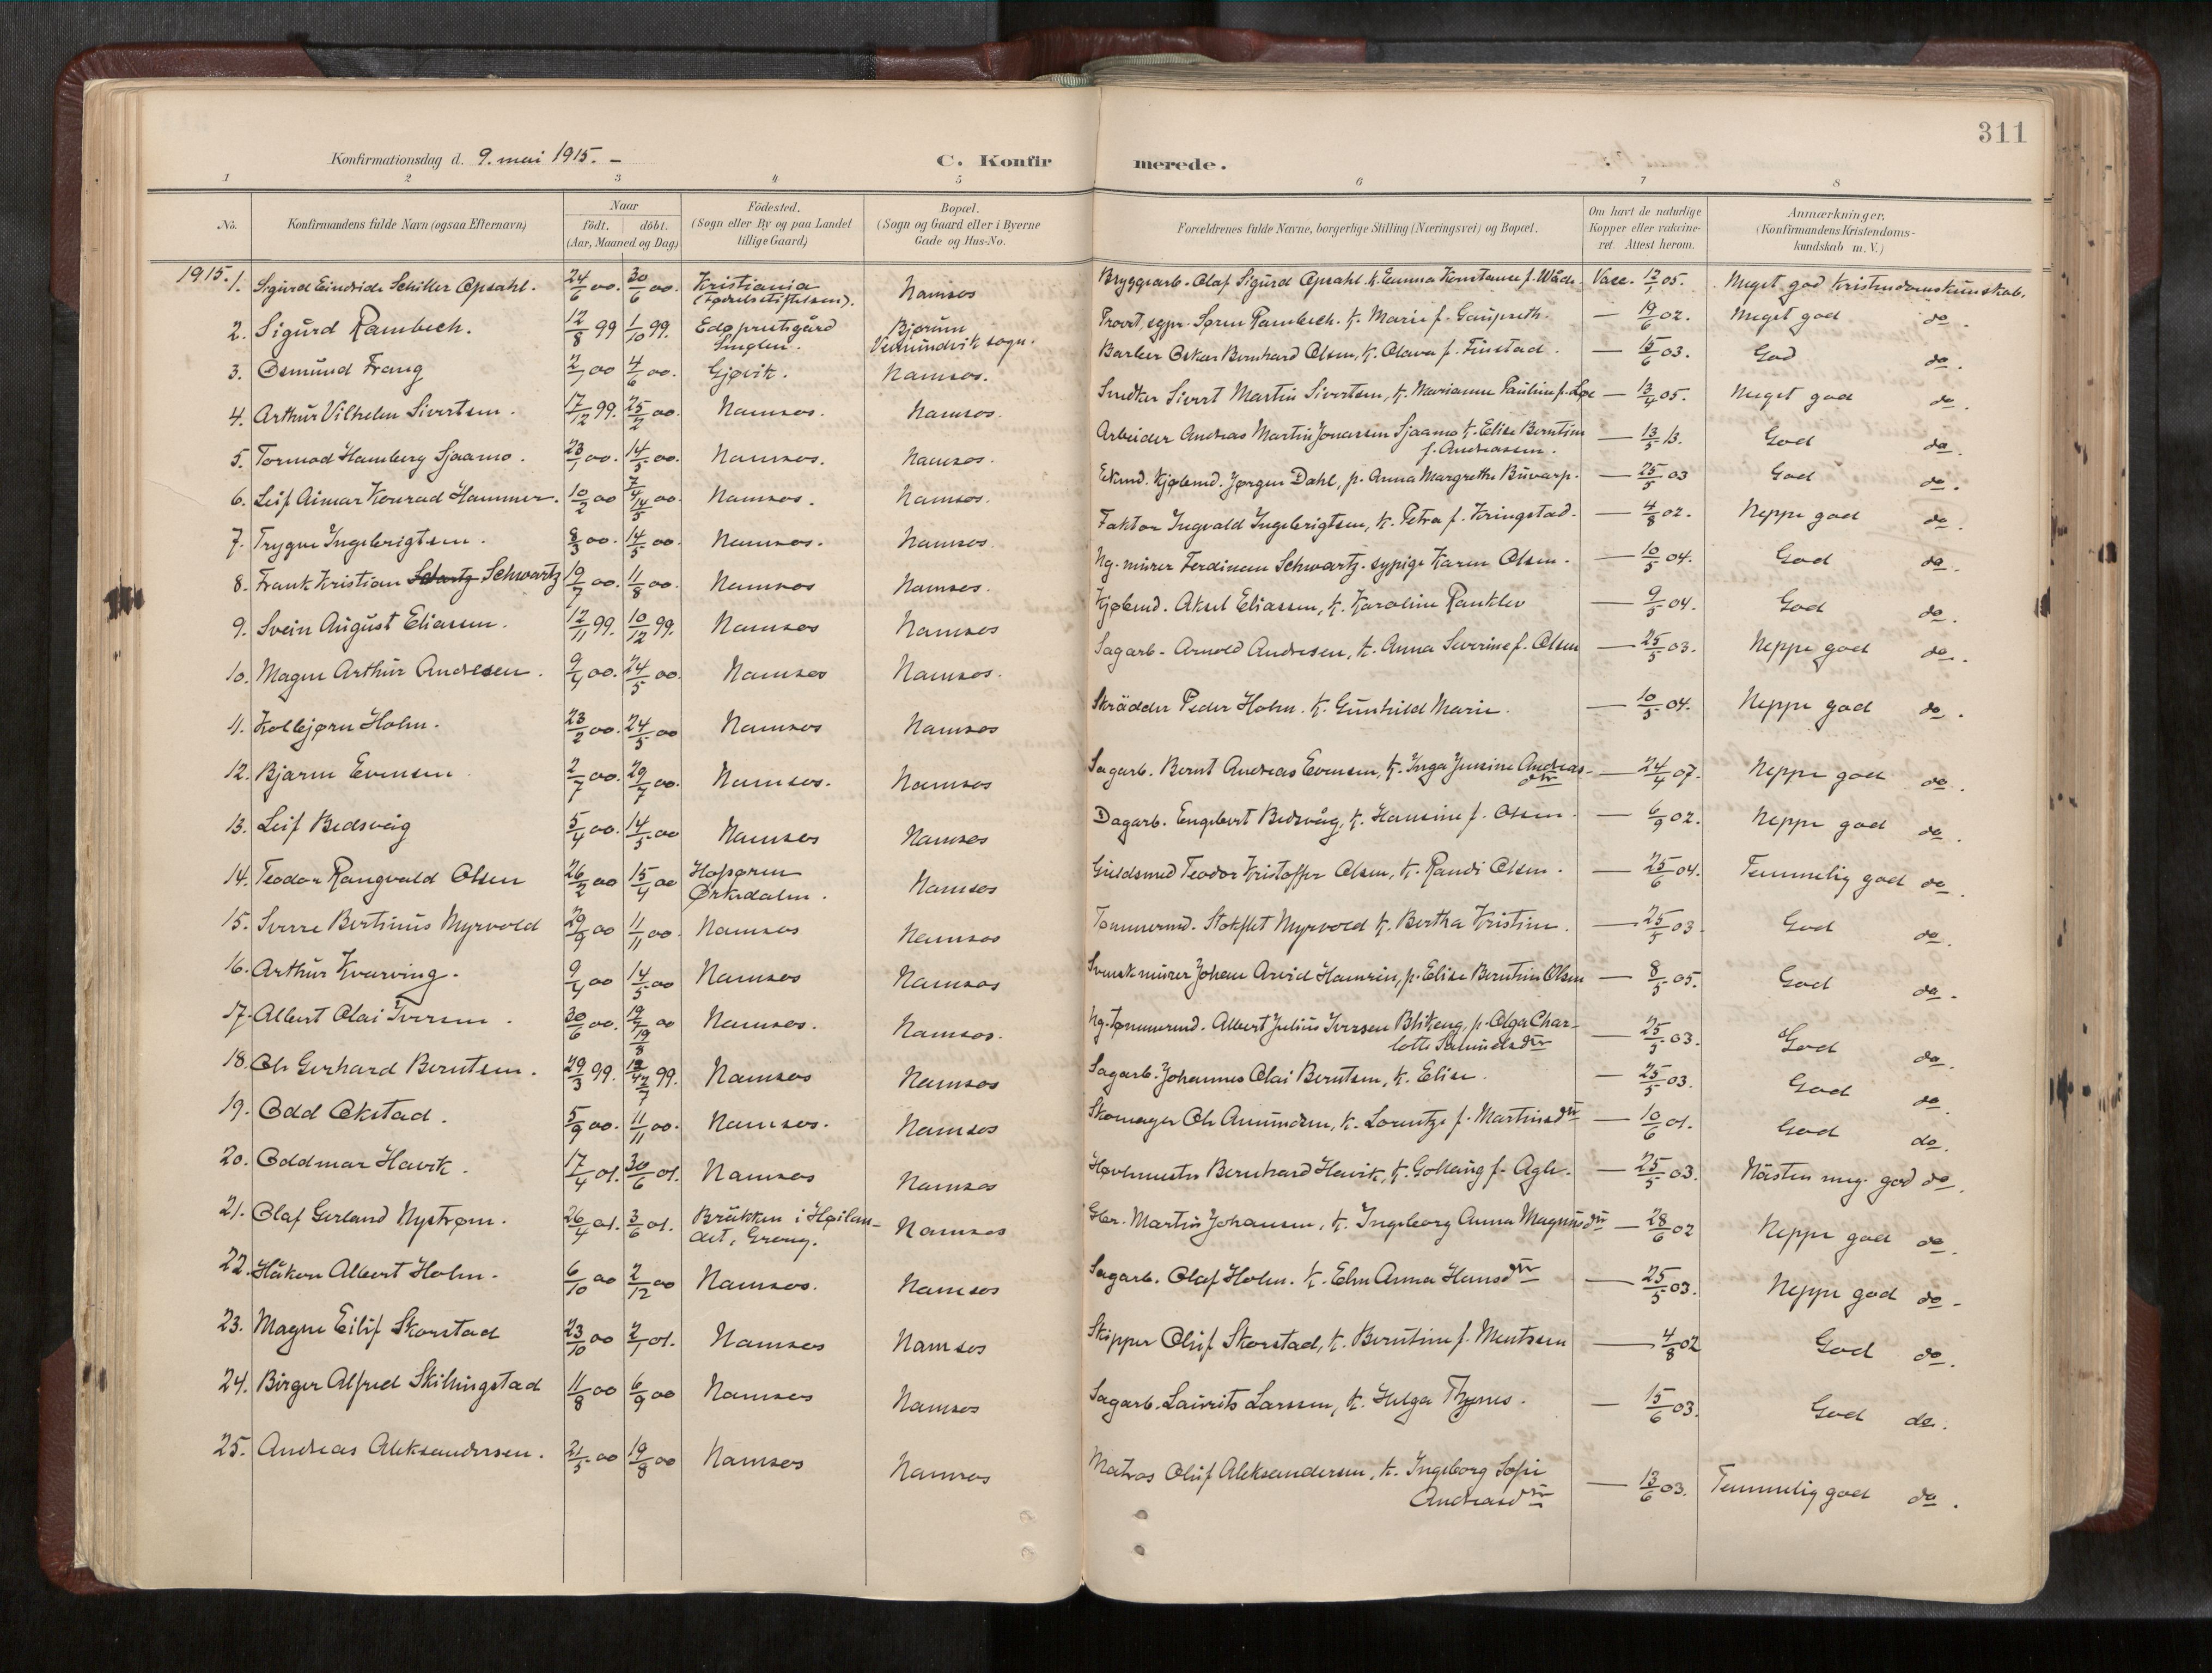 311
Konfirmationsdag d. 9. mai 1915. –
C. Konfirmerede.
1 2 3 4 5 6 7 8
No.
Konfirmandens fulde Navn (ogsaa Efternavn)
Naar
födt. döbt.
(Aar, Maaned og Dag)
Födested.
(Sogn eller By og paa Landet
tillige Gaard)
Bopæl.
(Sogn og Gaard eller i Byerne
Gade og Hus-No.
Forældrenes fulde Navne, borgerlige Stilling (Næringsvei) og Bopæl.
Om havt de naturlige
Kopper eller vakcine-
ret. Attest herom.
Anmærkninger.
(Konfirmandens Kristendoms-
kundskab m. V.)
1915. 1. Sigurd Eindride Schiller Opsahl. 24/6 00. 30/6 00. Kristiania (Fødselsstiftelsen). Namsos Bryggearb. Olaf Sigurd Opsahl k. Emma Konstanse f. Wåde. Vacc. 12/7 05. Meget god kristendomskunskab.
2. Sigurd Rambech. 12/8 99 1/10 99. Edø prestegård Smølen. Bjørum Vemundvik sogn. Provst, sgpr. Søren Rambech. k. Marie f. Gaupseth. — 19/6 02. Meget god do.
3. Osmund Frang 2/1 00 4/6 00. Gjøvik. Namsos. Barber Oskar Bernhard Olsen, k. Olava f. Finstad. — 15/6 03. God do.
4. Arthur Vilhelm Sivertsen. 17/12 99. 25/2 00. Namsos. Namsos. Snedker Sivert Martin Sivertsen, k. Marianne Pauline f. Løe — 13/4 05. Meget god do.
5. Tormod Hamberg Sjaamo. 23/1 00. 14/5 00. Namsos. Namsos. Arbeider Andreas Martin Jonassen Sjaamo k. Elise Berntine f. Andreassen. — 13/5 13. God do.
6. Leif Aimar Konrad Hammer. 10/2 00 7/4 14/5 00. Namsos. Namsos. Enkemd. kjøbmd. Jørgen Dahl, p. Anna Margrethe Buvarp. — 25/5 03 God do.
7. Trygve Ingebrigtsen. 8/3 00. 14/5 00. Namsos. Namsos. Faktor Ingvald Ingebrigtsen, k. Petra f. Kringstad. — 4/8 02. Neppe god do.
8. Frank Kristian Schwartz 19/7 00. 11/8 00. Namsos Namsos. Ug. murer Ferdinan Schwartz. sypige Karen Olsen. — 10/5 04. God do.
9. Svein August Eliassen. 12/11 99. 10/12 99. Namsos Namsos Kjøbmd. Aksel Eliassen, k. Karoline Ranklev — 9/5 04. God do.
10. Magne Arthur Andresen. 9/4 00. 24/5 00. Namsos Namsos. Sagarb. Arnold Andresen, k. Anna Severine f. Olsen — 25/5 03. Neppe god do.
11. Kolbjørn Holm. 23/2 00. 24/5 00 Namsos Namsos Skrädder Peder Holm. k. Gunhild Marie. — 10/5 04. Neppe god do.
12. Bjarne Evensen 2/7 00. 29/7 00. Namsos. Namsos Sagarb. Bernt Andreas Evensen, k. Inga Jensine Andreasdtr — 24/4 07. Neppe god do.
13. Leif Bedsvåg 5/4 00. 14/5 00 Namsos Namsos Dagarb. Engebert Bedsvåg, k. Hansine f. Olsen. — 6/9 02. Neppe god do.
14. Teodor Rangvald Olsen 26/2 00 15/4 00 Hofsøren Ørkedalen. Namsos Guldsmed Teodor Kristoffer Olsen, k. Randi Olsen. — 25/6 04. Temmelig god do.
15. Sverre Bertinius Myrvold 29/9 00 11/11 00. Namsos Namsos Tømmermd. Stokflet Myrvold k. Bertha Kristine. — 25/5 03. God do.
16. Arthur Kvarving. 9/4 00 14/5 00 Namsos Namsos Svensk murer Johan Arvid Hamrin, p. Elise Berntine Olsen — 8/5 05. God do.
17. Albert Olai Iversen. 30/6 00. 19/7 19/8 00 Namsos. Namsos. Ug. tømmermd. Albert Julius Iversen Blikeng, p. Olga Charlotte Samuelsdtr — 25/5 03. God do.
18. Ole Gerhard Berntsen. 29/3 99. 99. Namsos Namsos Sagarb. Johannes Olai Berntsen, k. Elise. — 25/5 03. God do.
19. Odd Okstad. 5/9 00. 11/11 00. Namsos. Namsos Skomager Ole Amundsen, k. Lorentze f. Martinsdtr — 10/6 01. God do.
20. Oddmar Havik. 17/4 01. 30/6 01. Namsos Namsos Høvlmester Bernhard Havik, k. Gollaug f. Agle. — 25/5 03. Nästen meg. god do.
21. Olaf Gerland Nystrøm. 26/4 01. 3/6 01. Brükken i Høilandet, Grong. Namsos Hr. Martin Johansen, k. Ingeborg Anna Magnusdtr — 28/6 02 Neppe god do.
22. Håkon Albert Holm. 6/10 00 2/12 00 Namsos. Namsos Sagarb. Olaf Holm. k. Elen Anna Hansdtr — 25/5 03. Neppe god do.
23. Magne Eilif Skorstad 23/10 00 2/1 01. Namsos Namsos Skipper Oluf Skorstad, k. Berntine f. Mentzen — 4/8 02 God do.
24. Birger Alfred Skillingstad 11/8 00 6/9 00 Namsos Namsos Sagarb. Laurits Larssen, k. Helga Thynes. — 15/6 03. God do.
25. Andreas Aleksandersen. 21/5 00 19/8 00 Namsos Namsos Matros Oluf Aleksandersen, k. Ingeborg Sofie Andreasdtr — 13/6 03. Temmelig god do.